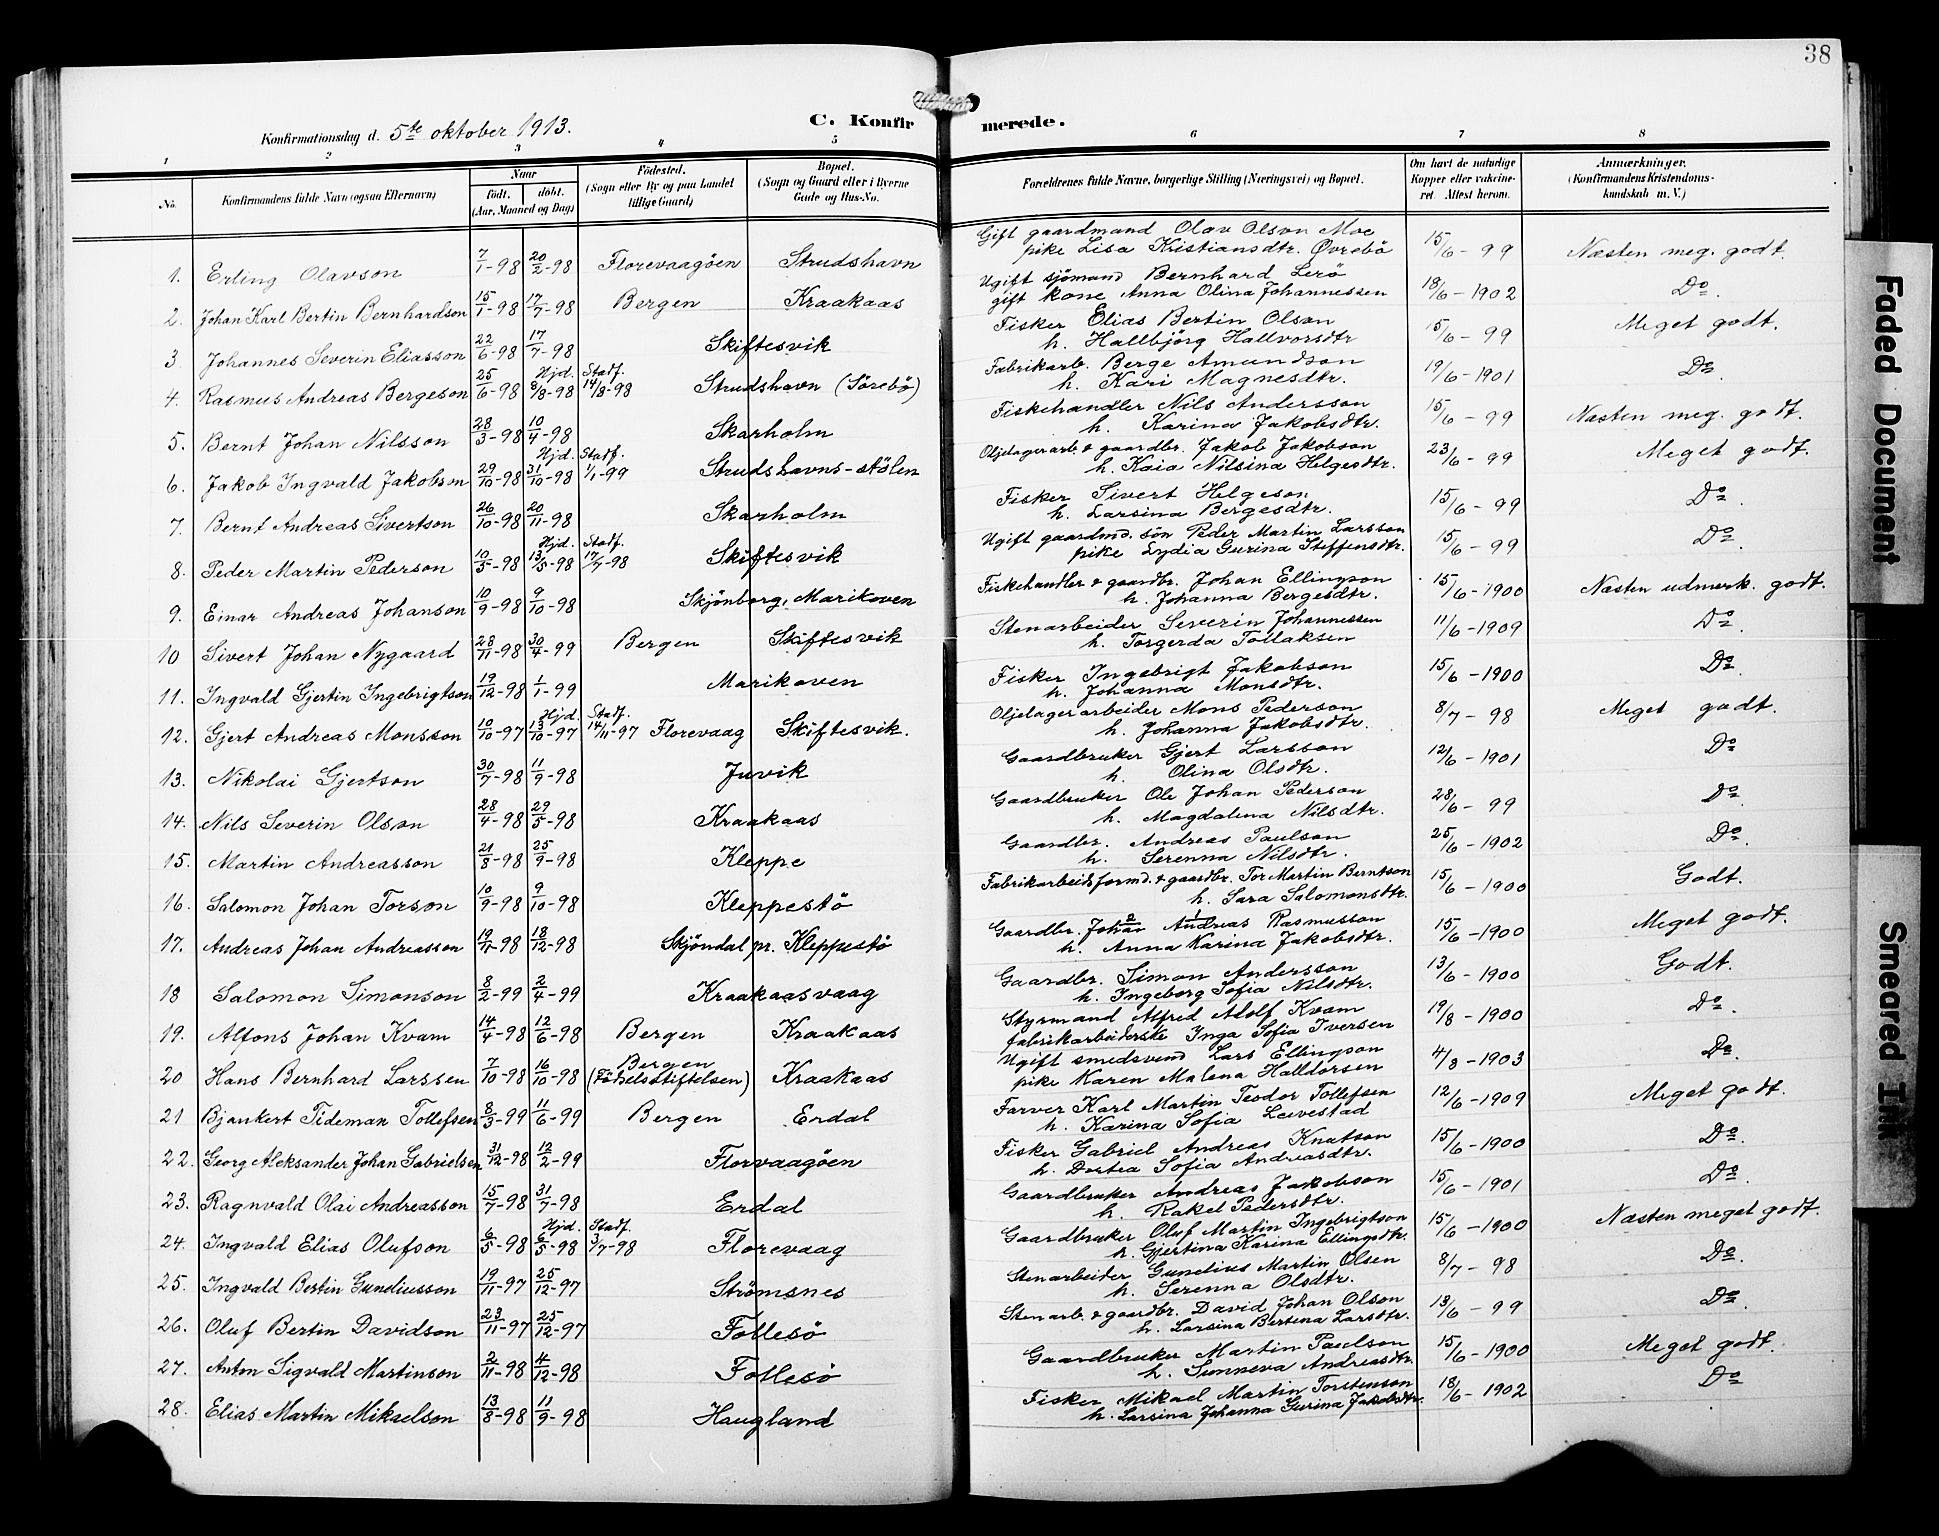 38
Konfirmationsdag d. 5te oktober 1913. C. Konfirmerede.
1 2 3 4 5 6 7 8
No. Konfirmandens fulde Navn (ogsaa Efternavn) Naar født. døbt. (Aar, Maaned og Dag) Fødested. (Sogn eller By og paa Landet tillige Gaard) Bopæl. (Sogn og Gaard eller i Byerne Gade og Hus-No. Forældrenes fulde Navne, borgerlige Stilling (Næringsvei) og Bopæl. Om havt de naturlige Kopper eller vakcineret. Attest herom. Anmærkninger. (Konfirmandens Kristendomskundskab m. V.)
1. Erling Olavson 7/1-98 20/2-98 Florevaagöen Strudshavn Gift gaardmand Olav Olson Moe 15/6-99 Næsten meg. godt.
pike Lisa Kristiansdtr. Øvrebö
2. Johan Karl Bertin Bernhardson 15/1-98 17/7-98 Bergen Kraakaas Ugift sjömand Bernhard Lerö 18/6-1902 Do.
gift kone Anna Olina Johannessen
3 Johannes Severin Eliasson 22/6-98 17/7-98 Skiftesvik Fisker Elias Bertin Olson 15/6-99 Meget godt.
h. Hallbjörg Hallvorsdtr
4. Rasmus Andreas Bergeson 25/6-98 Hjd. 8/8-98 Stadf. 14/8-98 Strudshavn (Sörebö) Fabrikarb. Berge Amundson 19/6-1901 Do
h. Kari Magnesdtr.
5. Bernt Johan Nilsson 28/3-98 10/4-98 Skarholm Fiskehandler Nils Andersson 15/6-99 Næsten meg. godt.
h. Karina Jakobsdtr.
6. Jakob Ingvald Jakobson 29/10-98 Hjd. 31/10-98 Stadf. 1/1-99 Strudshavns-stölen Oljelagerarb. & gaardbr. Jakob Jakobson 23/6-99 Meget godt.
h. Kaia Nilsina Helgesdtr.
7. Bernt Andreas Sivertson 26/10-98 20/11-98 Skarholm Fisker Sivert Helgeson 15/6-99 Do.
h. Larsina Bergesdtr.
8. Peder Martin Pederson 10/5-98 Hjd. 13/5-98 Stadf. 17/7-98 Skiftesvik Ugift gaardmd. sön Peder Martin Larsson 15/6-99 Do.
pike Lydia Gurina Steffensdtr.
9. Einar Andreas Johanson 10/9-98 9/10-98 Skjönborg, Marikoven Fiskehandler & gaardbr. Johan Ellingson 15/6-1900 Næsten udmerk. godt.
h. Johanna Bergesdtr.
10 Sivert Johan Nygaard 28/11-98 30/4-99 Bergen Skiftesvik Stenarbeider Severin Johannessen 11/6-1909 Do.
h. Torgerda Tollaksen
11. Ingvald Gjertin Ingebrigtson 19/12-98 1/1-99 Marikoven Fisker Ingebrigt Jakobson 15/6-1900 Do.
h. Johanna Monsdtr.
12. Gjert Andreas Monsson 10/10-97 Hjd. 13/10-97 Stadf. 14/11-97 Florevaag Skiftesvik. Oljelagerarbeider Mons Pederson 8/7-98 Meget godt.
h. Johanna Jakobsdtr.
13. Nikolai Gjertson 30/7-98 11/9-98 Juvik Gaardbruker Gjert Larsson 12/6-1901 Do
h. Olina Olsdtr.
14. Nils Severin Olson 28/4-98 29/5-98 Kraakaas Gaardbruker Ole Johan Pederson 28/6-99 Do.
h. Magdalena Nilsdtr.
15. Martin Andreasson 21/8-98 25/9-98 Kleppe Gaardbr. Andreas Paulson 25/6-1902 Do.
h. Serenna Nilsdtr.
16. Salomon Johan Torson 10/9-98 9/10-98 Kleppestö Fabrikarbeidsformd. & gaardbr. Tor Martin Berntson 15/6-1900 Godt.
h. Sara Salomonsdtr.
17. Andreas Johan Andreasson 19/11-98 18/12-98 Skjöndal pr. Kleppestö Gaardbr. Johan Andreas Rasmusson 15/6-1900 Meget godt.
h. Anna Karina Jakobsdtr.
18 Salomon Simonson 8/2-99 2/4-99 Kraakaasvaag Gaardbr. Simon Andersson 13/6-1900 Godt.
h. Ingeborg Sofia Nilsdtr.
19. Alfons Johan Kvam 14/4-98 12/6-98 Bergen Kraakaas Styrmand Alfred Adolf Kvam 19/8-1900 Do.
fabrikarbeiderske Inga Sofia Iversen
20 Hans Bernhard Larssen 7/10-98 16/10-98 Bergen (Födselsstiftelsen) Kraakaas Ugift smedsvend Lars Ellingson 4/8-1903 Do.
pike Karen Malena Halldorsen
21 Bjankert Tideman Tollefsen 8/3-99 11/6-99 Bergen Erdal Farver Karl Martin Teodor Tollefsen 12/6-1909 Meget godt.
h. Karina Sofia Leivestad
22. Georg Aleksander Johan Gabrielsen 31/12-98 12/2-99 Florvaagöen Fisker Gabriel Andreas Knutson 15/6-1900 Do.
h. Dortea Sofia Andreasdtr.
23. Ragnvald Olai Andreasson 15/7-98 31/7-98 Erdal Gaardbruker Andreas Jakobson 15/6-1901 Do.
h. Rakel Pedersdtr.
24. Ingvald Elias Olufson 6/5-98 Hjd. 6/5-98 Stadf. 3/7-98 Florevaag Gaardbruker Oluf Martin Ingebrigtson 15/6-1900 Næsten meget godt.
h. Gjertina Karina Ellingsdtr.
25. Ingvald Bertin Gundiusson 19/11-97 25/12-97 Strömsnes Stenarbeider Gundius Martin Olsen 8/7-98 Do.
h. Serenna Olsdtr.
26. Oluf Bertin Davidson 23/11-97 25/12-97 Follesö Stenarb. & gaardbr. David Johan Olson 13/6-99 Do.
h. Larsina Bertina Larsdtr.
27. Anton Sigvald Martinson 2/11-98 4/12-98 Follesö Gaardbruker Martin Paulson 15/6-1900 Meget godt.
h. Sunneva Andreasdtr.
28. Elias Martin Mikaelson 13/8-98 11/9-98 Haugland Fisker Mikael Martin Torstenson 18/6-1902 Do
h. Larsina Johanna Gurina Jakobsdtr.
Faded Document
Smeared Ink